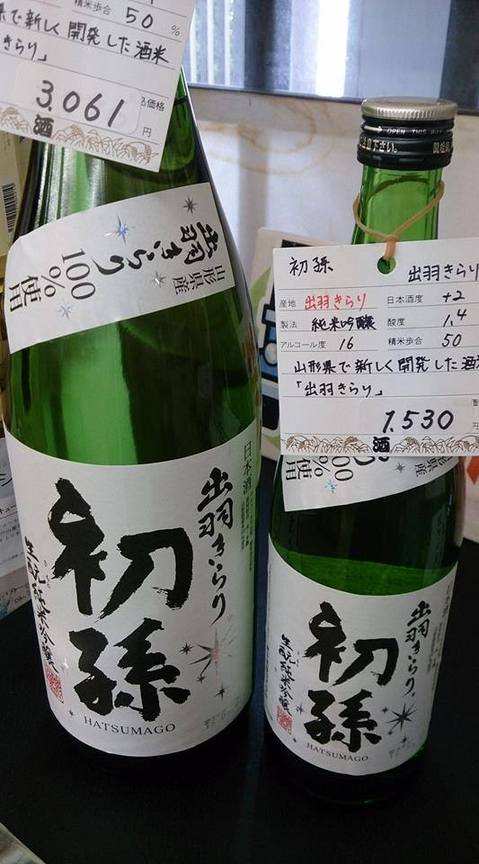 精米歩合 50 %
県で新しく開発した酒米
きらり」
3,061 価格 円
酒
出羽きらり
100%使用
山形県産
日本酒
出羽きらり
初孫
生酛純米吟醸
HATSUMAGO
OPEN THIS WAY
初孫 出羽きらり
産地 出羽きらり 日本酒度 +2
製法 純米吟醸 酸度 1.4
アルコール度 16 精米歩合 50
山形県で新しく開発した酒
「出羽きらり」
1,530 円
酒
100%使用
出羽きらり
初孫
生酛純米吟醸
HATSUMAGO